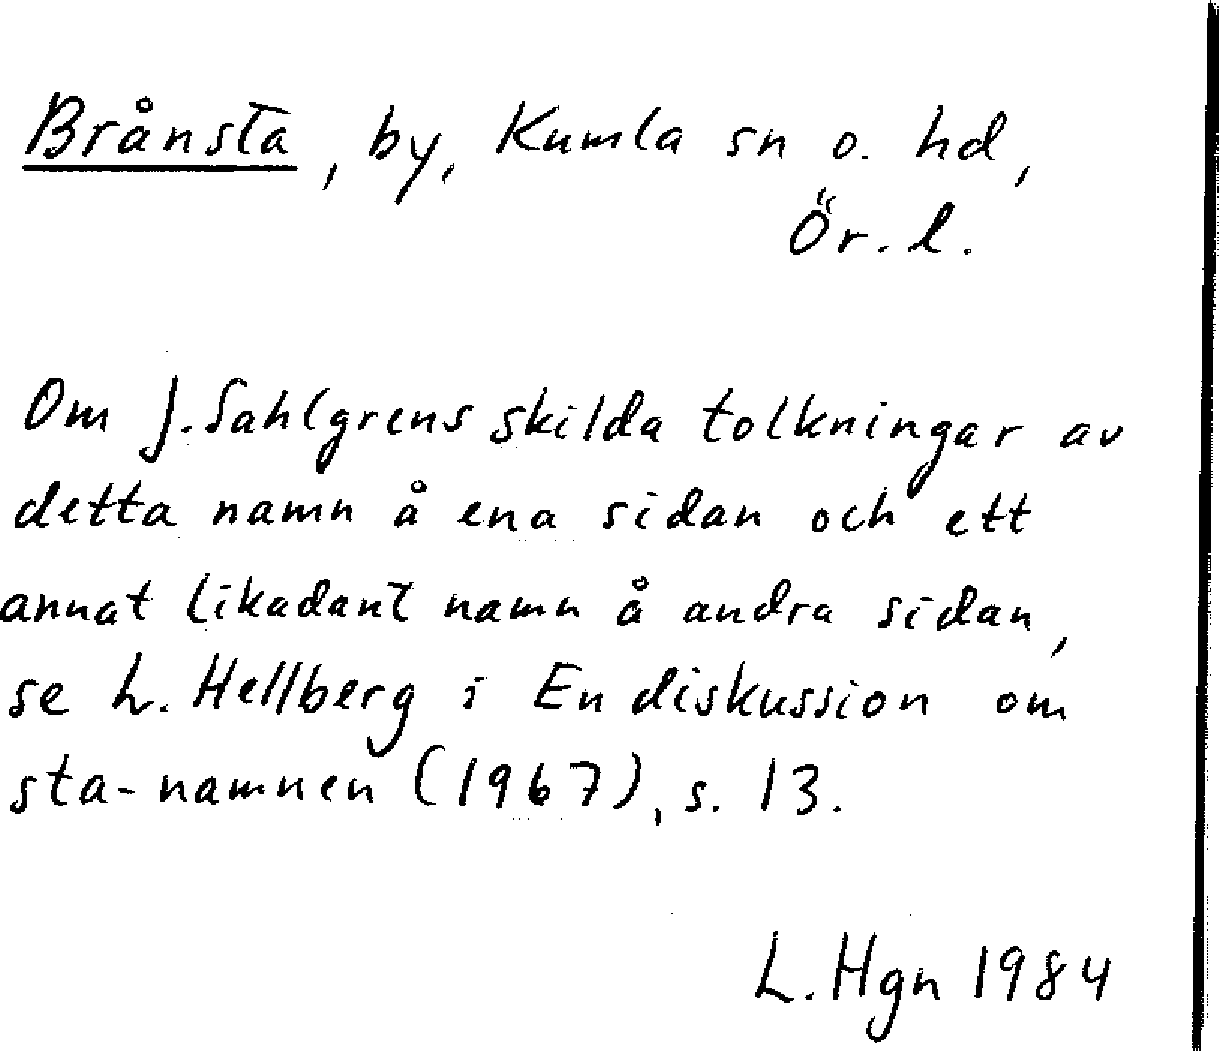 Brånsta, by, Kumla sn o. hd,
Ör. l.
Om J. Sahlgrens skilda tolkningar av
detta namn å ena sidan och ett
annat likadant namn å andra sidan,
se L. Hellberg i En diskussion om
sta-namnen (1967), s. 13.
L. Hgn 1984